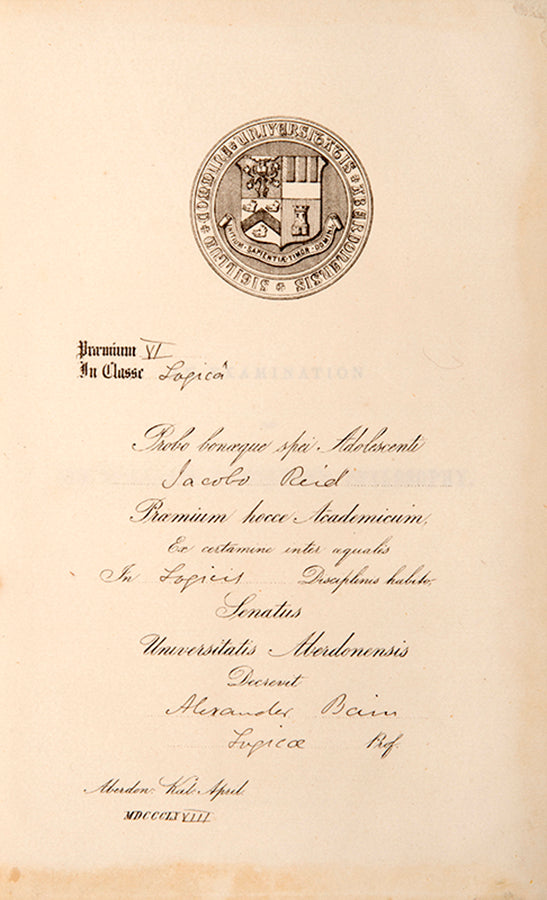 SIGILLUM * DOMINE * UNIVERSITATIS * ABERDONENSIS *
INITIUM · SAPIENTIÆ · TIMOR · DOMINI
Præmium VI
In Classe Logicâ
EXAMINATION
PHILOSOPHY
Probo bonæque spei Adolescenti
Jacobo Reid
Præmium hocce Academicum,
Ex certamine inter æqualis
In Logicis Disciplinis habito,
Senatus
Universitatis Aberdonensis
Decrevit
Alexander Bain
Logicæ Prof.
Aberdon: Kal. April.
MDCCCLXVIII